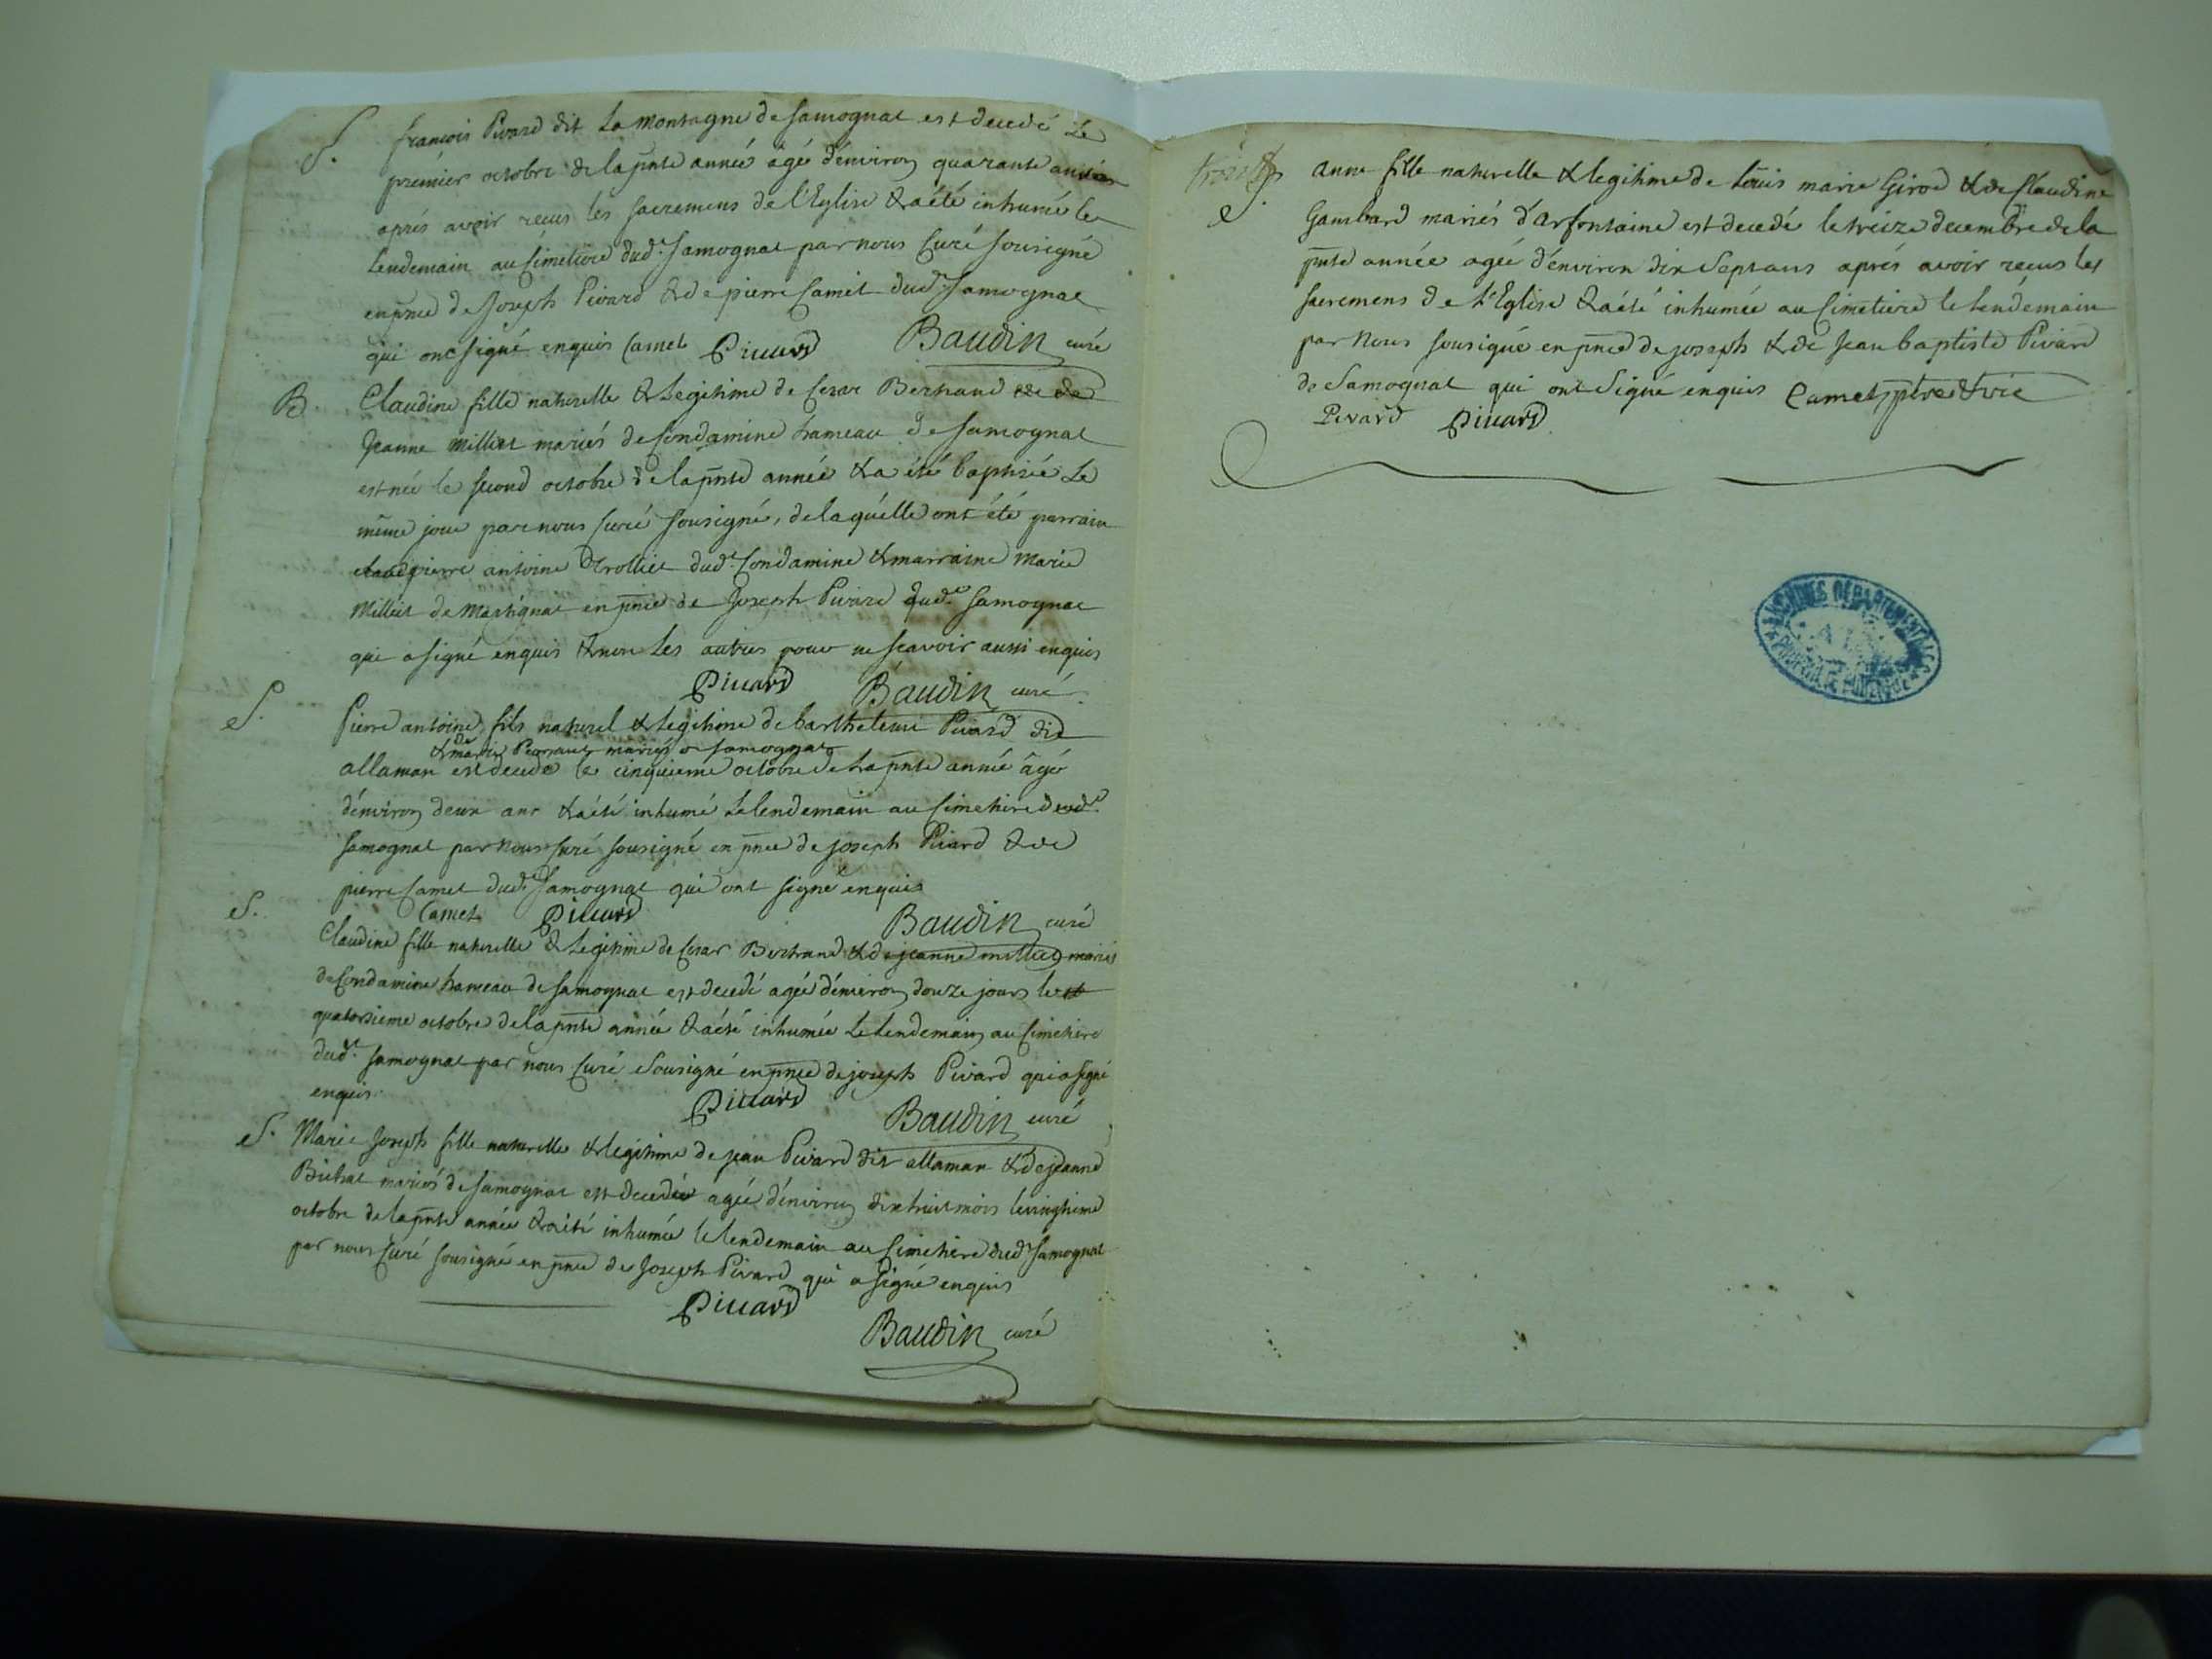 S. françois Pivard dit La montagne de samognat est decedé Le
prémier octobre de la pnte année âgé d'environ quarante années
aprés avoir recus les sacremens de l'Eglise & a été inhumé le
Lendemain au Cimetiere dud.t Samognat par nous Curé sousigné
en pnce de Joseph Pivard & de pierre Camet dud.t Samognat
qui ont signé enquis Camet Pivard Baudin curé
B. Claudine fille naturelle & Legitime de Cesar Bertrand & de
Jeanne Milliet mariés de Condamine hameau de Samognat
est née le second octobre de la pnte année & a été baptisée Le
même jour par nous Curé sousigné, de laquelle ont été parrain
pierre antoine Trolliet dud.t Condamine & marraine Marie
Milliet de Martignat en pnce de Joseph Pivard dud.t Samognat
qui a signé enquis & non Les autres pour ne scavoir aussi enquis
Pivard Baudin curé
S. Pierre antoine fils naturel & legitime de barthelemi Pivard dit
& de marie mariés de samognat
allaman est decedé le cinquieme octobre de La pnte année âgé
d'environ deux ans & a été inhumé Le lendemain au Cimetiere dud.t
Samognat par Nous Curé sousigné en pnce de joseph Pivard & de
pierre Camet dud.t Samognat qui ont signé enquis
Camet Pivard Baudin curé
S. Claudine fille naturelle & Legitime de Cesar Bertrand & de jeanne milliet mariés
de Condamine hameau de Samognat est decedé agée d'environ douze jours le
quatorsieme octobre de la pnte année & a été inhumée Le Lendemain au Cimetiere
dud.t Samognat par nous Curé Sousigné en pnce de joseph Pivard qui a signé
enquis Pivard Baudin curé
S. Marie Joseph fille naturelle & legitime de jean Pivard dit allaman & de jeanne
Bichat mariés de Samognat est decedée agée d'environ dix huit mois le vingtieme
octobre de la pnte année & a été inhumée le lendemain au Cimetiere dud.t Samognat
par nous Curé sousigné en pnce de Joseph Pivard qui a signé enquis
Pivard
Baudin curé
S. anne fille naturelle & legitime de Louis marie Girod & de Claudine
Gambard mariés d'arfontaine est decedé le treize decembre de la
pnte année agée d'environ dix Sept ans aprés avoir recus les
sacremens de L'Eglise & a été inhumée au Cimetiere le lendemain
par Nous sousigné en pnce de joseph & de jean baptiste Pivard
de Samognat qui ont signé enquis Camet ptre & vic
Pivard Pivard
ARCHIVES DÉPARTEMENTALES